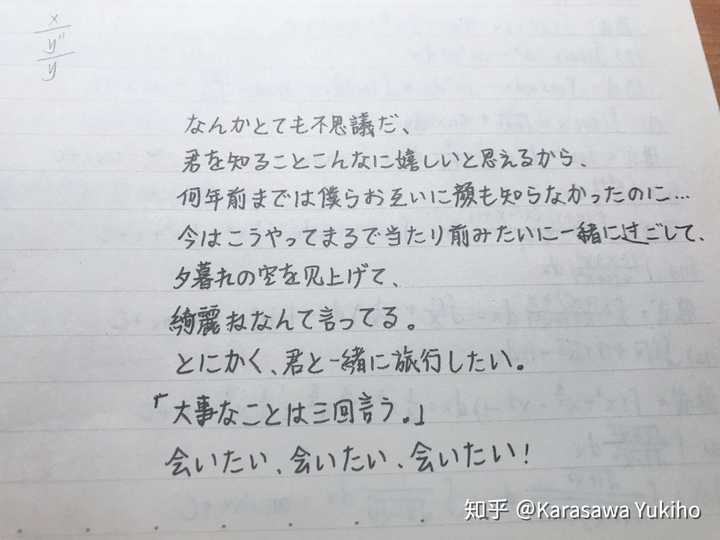 x
y"
y
なんかとても不思議だ、
君を知ることこんなに嬉しいと思えるから、
何年前までは僕らお互いに顔も知らなかったのに…
今はこうやってまるで当たり前みたいに一緒に过ごして、
夕暮れの空を见上げて、
綺麗ねなんて言ってる。
とにかく、君と一緒に旅行したい。
「大事なことは三回言う。」
会いたい、会いたい、会いたい!
知乎 @Karasawa Yukiho